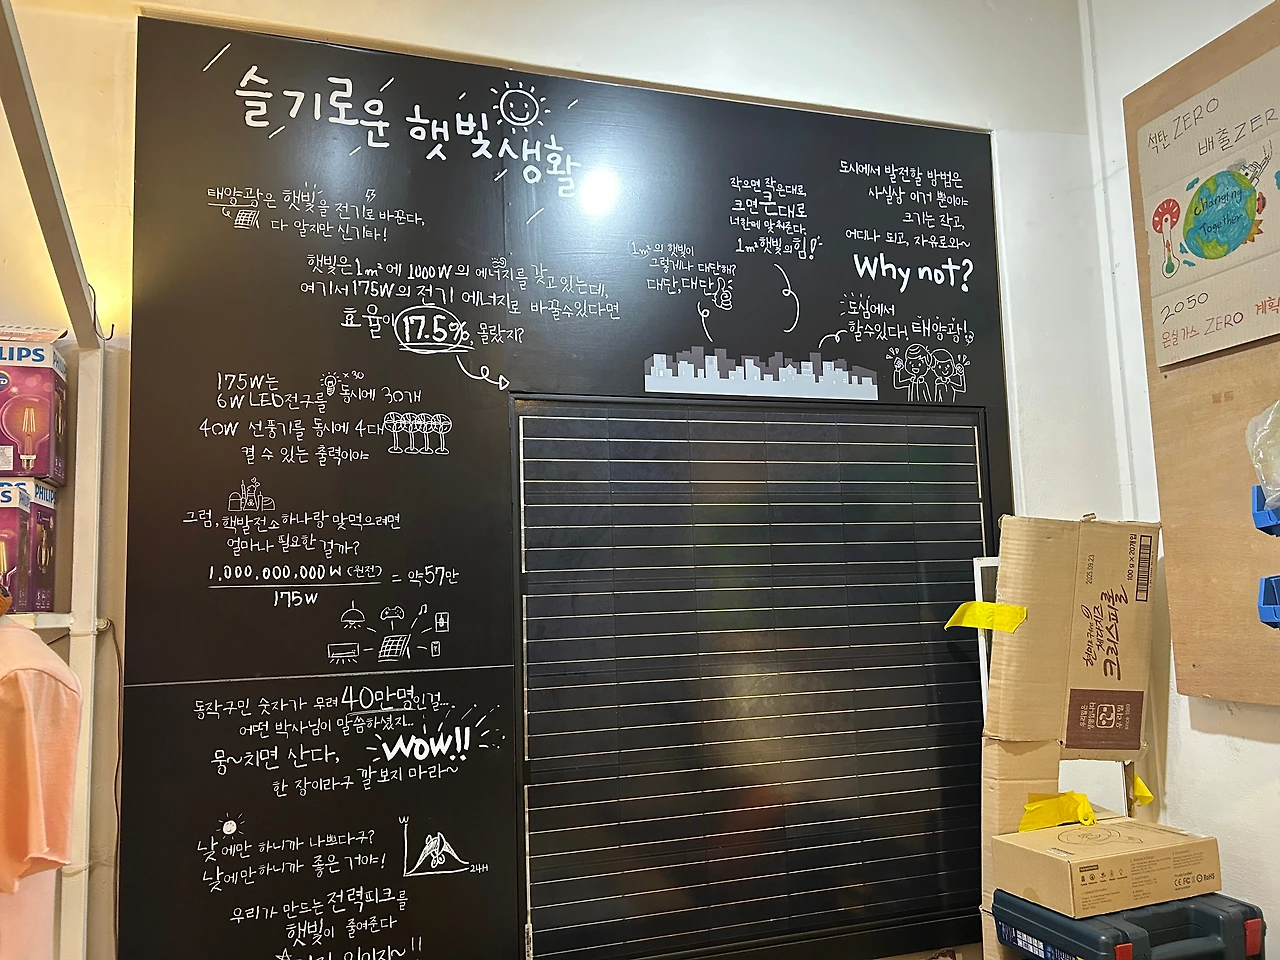 슬기로운 햇빛생활
태양광은 햇빛을 전기로 바꾼다,
다 알지만 신기타!
햇빛은 1m²에 1000W의 에너지를 갖고 있는데,
여기서 175W의 전기 에너지로 바꿀수있다면
효율이 17.5%, 몰랐지?
175W는
6W LED전구를 x30 동시에 30개
40W 선풍기를 동시에 4대
켤 수 있는 출력이야
그럼, 핵발전소하나랑 맞먹으려면
얼마나 필요한 걸까?
1,000,000,000W (원전)
175W
= 약57만
동작구민 숫자가 무려 40만명인걸...
어떤 박사님이 말씀하셨지..
뭉~치면 산다,
WOW!!
한 장이라구 깔보지 마라~
낮에만 하니까 나쁘다구?
낮에만하니까 좋은 거야!
W
24H
우리가 만드는 전력피크를
햇빛이 줄여준다
1m²의 햇빛이
그렇게나 대단해?
대단, 대단
작으면 작은대로
크면 큰대로
너한테 맞춰준다.
1m²햇빛의 힘!
도시에서 발전할 방법은
사실상 이거 뿐이야
크기는 작고,
어디나 되고, 자유로와~
Why not?
도심에서
할수있다! 태양광!
석탄 ZERO
배출 ZER
Changing
Together
2050
온실가스 ZERO
계획
LIPS
PHILIPS
2025.09.23
RoHS